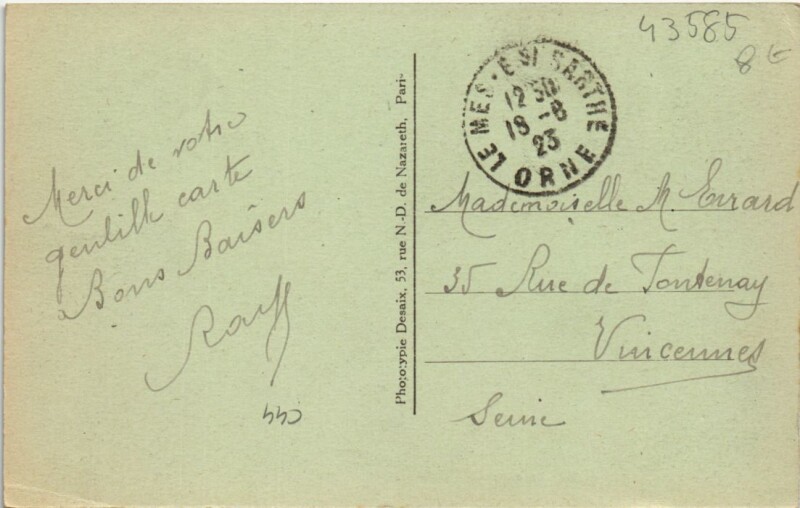 43585
8 €
LE MESLE S/ SARTHE
12 30
18 -8
23
ORNE
Merci de votre
gentille carte
Bons Baisers
Phototypie Desaix, 53, rue N.-D. de Nazareth, Pari-
Mademoiselle M. Evrard
35 Rue de Fontenay
Vincennes
Seine